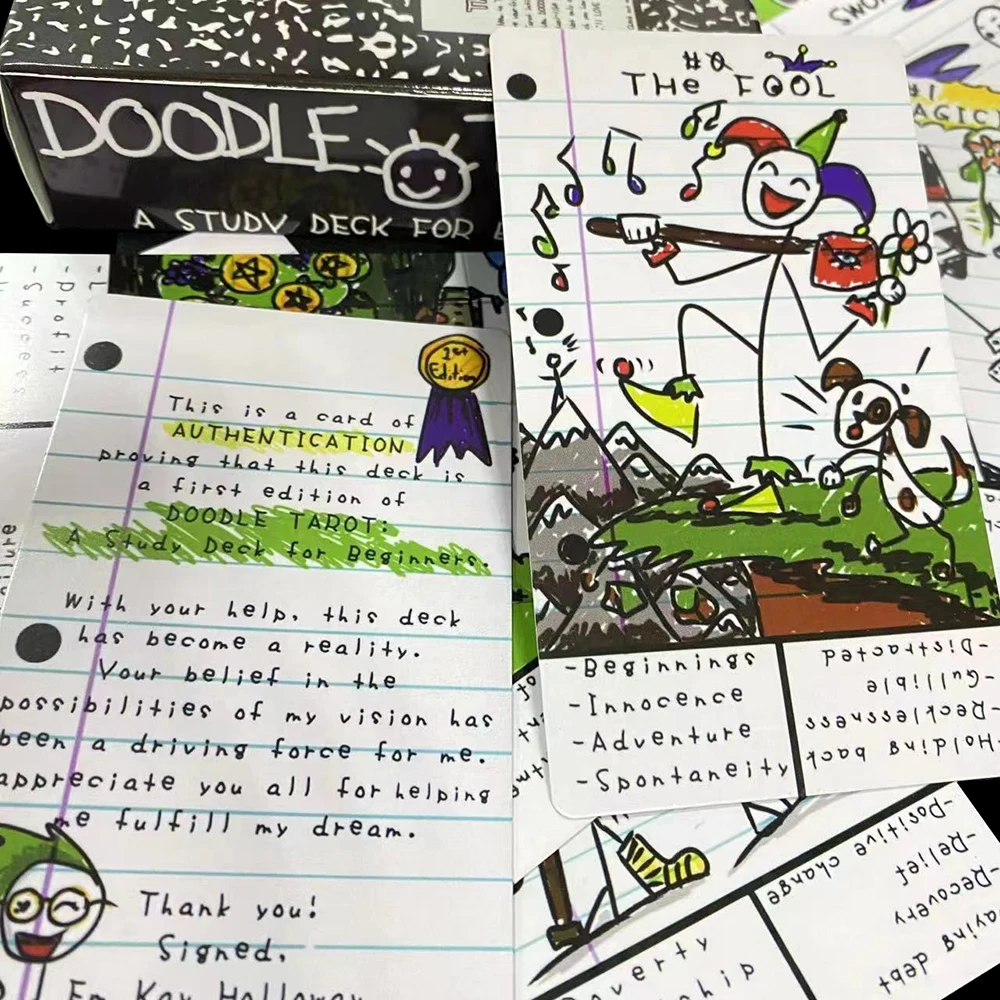 DOODLE
A STUDY DECK FOR
1st
Edition
This is a card of
AUTHENTICATION
proving that this deck is
a first edition of
DOODLE TAROT:
A Study Deck for Beginners.
With your help, this deck
has become a reality.
Your belief in the
possibilities of my vision has
been a driving force for me.
appreciate you all for helping
me fulfill my dream.
Thank you!
Signed,
Em Kay Holloway
#0
THe FOOL
-Beginnings
-Innocence
-Adventure
-Spontaneity
-Holding back
-Recklessness
-Gullible
-Distracted
#1
debt
-Recovery
-Relief
-Positive change